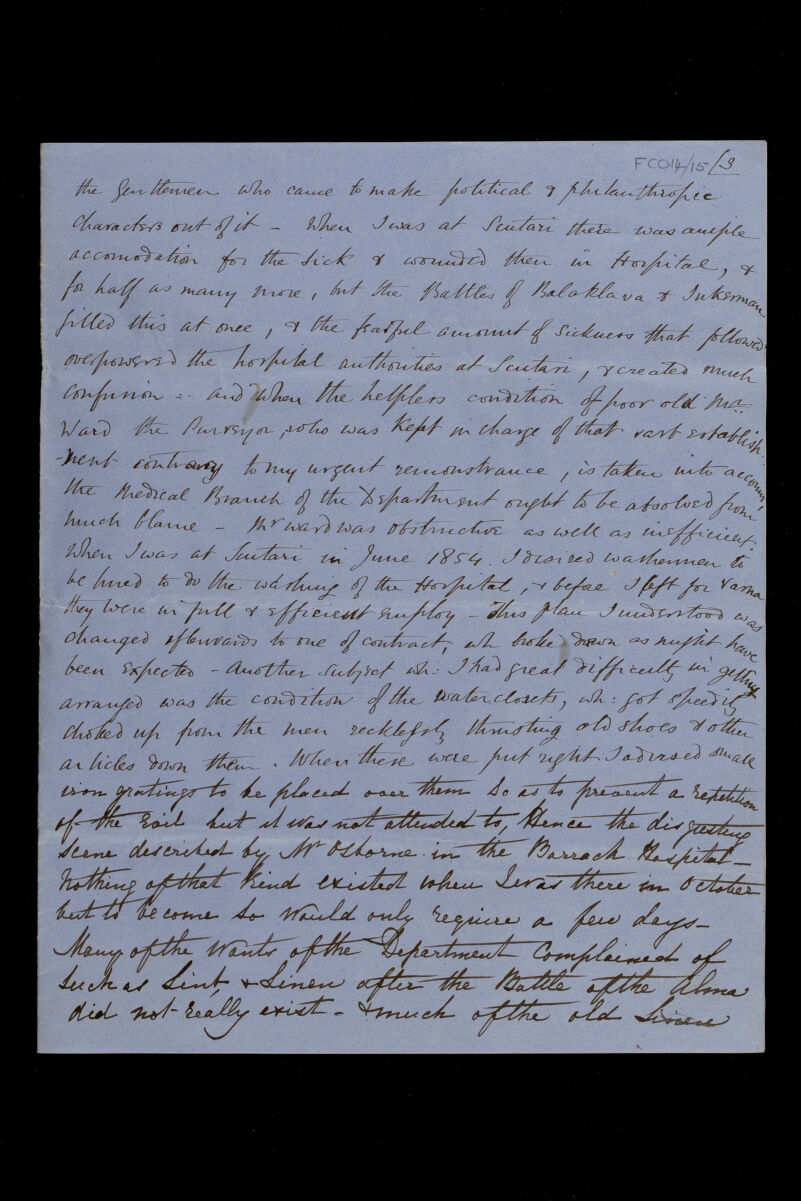 FCO14/15/3
the Gentlemen who came to make political & philanthropic
characters out of it - When I was at Scutari there was ample
accomodation for the Sick & wounded then in Hospital, &
for half as many more, but the Battles of Balaklava & Inkerman
filled this at once, & the fearful amount of sickness that followed
overpowered the hospital authorities at Scutari, & created much
confusion - and when the helpless condition of poor old Mr.
Ward the Purveyor, who was kept in charge of that vast establish-
-ment contrary to my urgent remonstrance, is taken into account,
the Medical Branch of the Department ought to be absolved from
much blame - Mr Ward was obstructive as well as inefficient.
When I was at Scutari in June 1854. I desired washermen to
be hired to do the washing of the Hospital, & before I left for Varna
they were in full & efficient employ - This plan I understood was
changed afterwards to one of contract, wh broke down as might have
been expected - Another subject wh: I had great difficulty in getting
arranged was the condition of the waterclosets, wh: got speedily
choked up from the men recklessly thrusting old shoes & other
articles down them. When these were put right I advised small
iron gratings to be placed over them so as to prevent a repetition
of the Evil but it was not attended to, Hence the disgusting
scene described by Mr Osborne in the Barrack Hospital -
Nothing of that kind existed when I was there in October
but to become so would only require a few days -
Many of the wants of the Department complained of
such as Lint, & Linen after the Battle of the Alma
did not really exist - & much of the old Linen